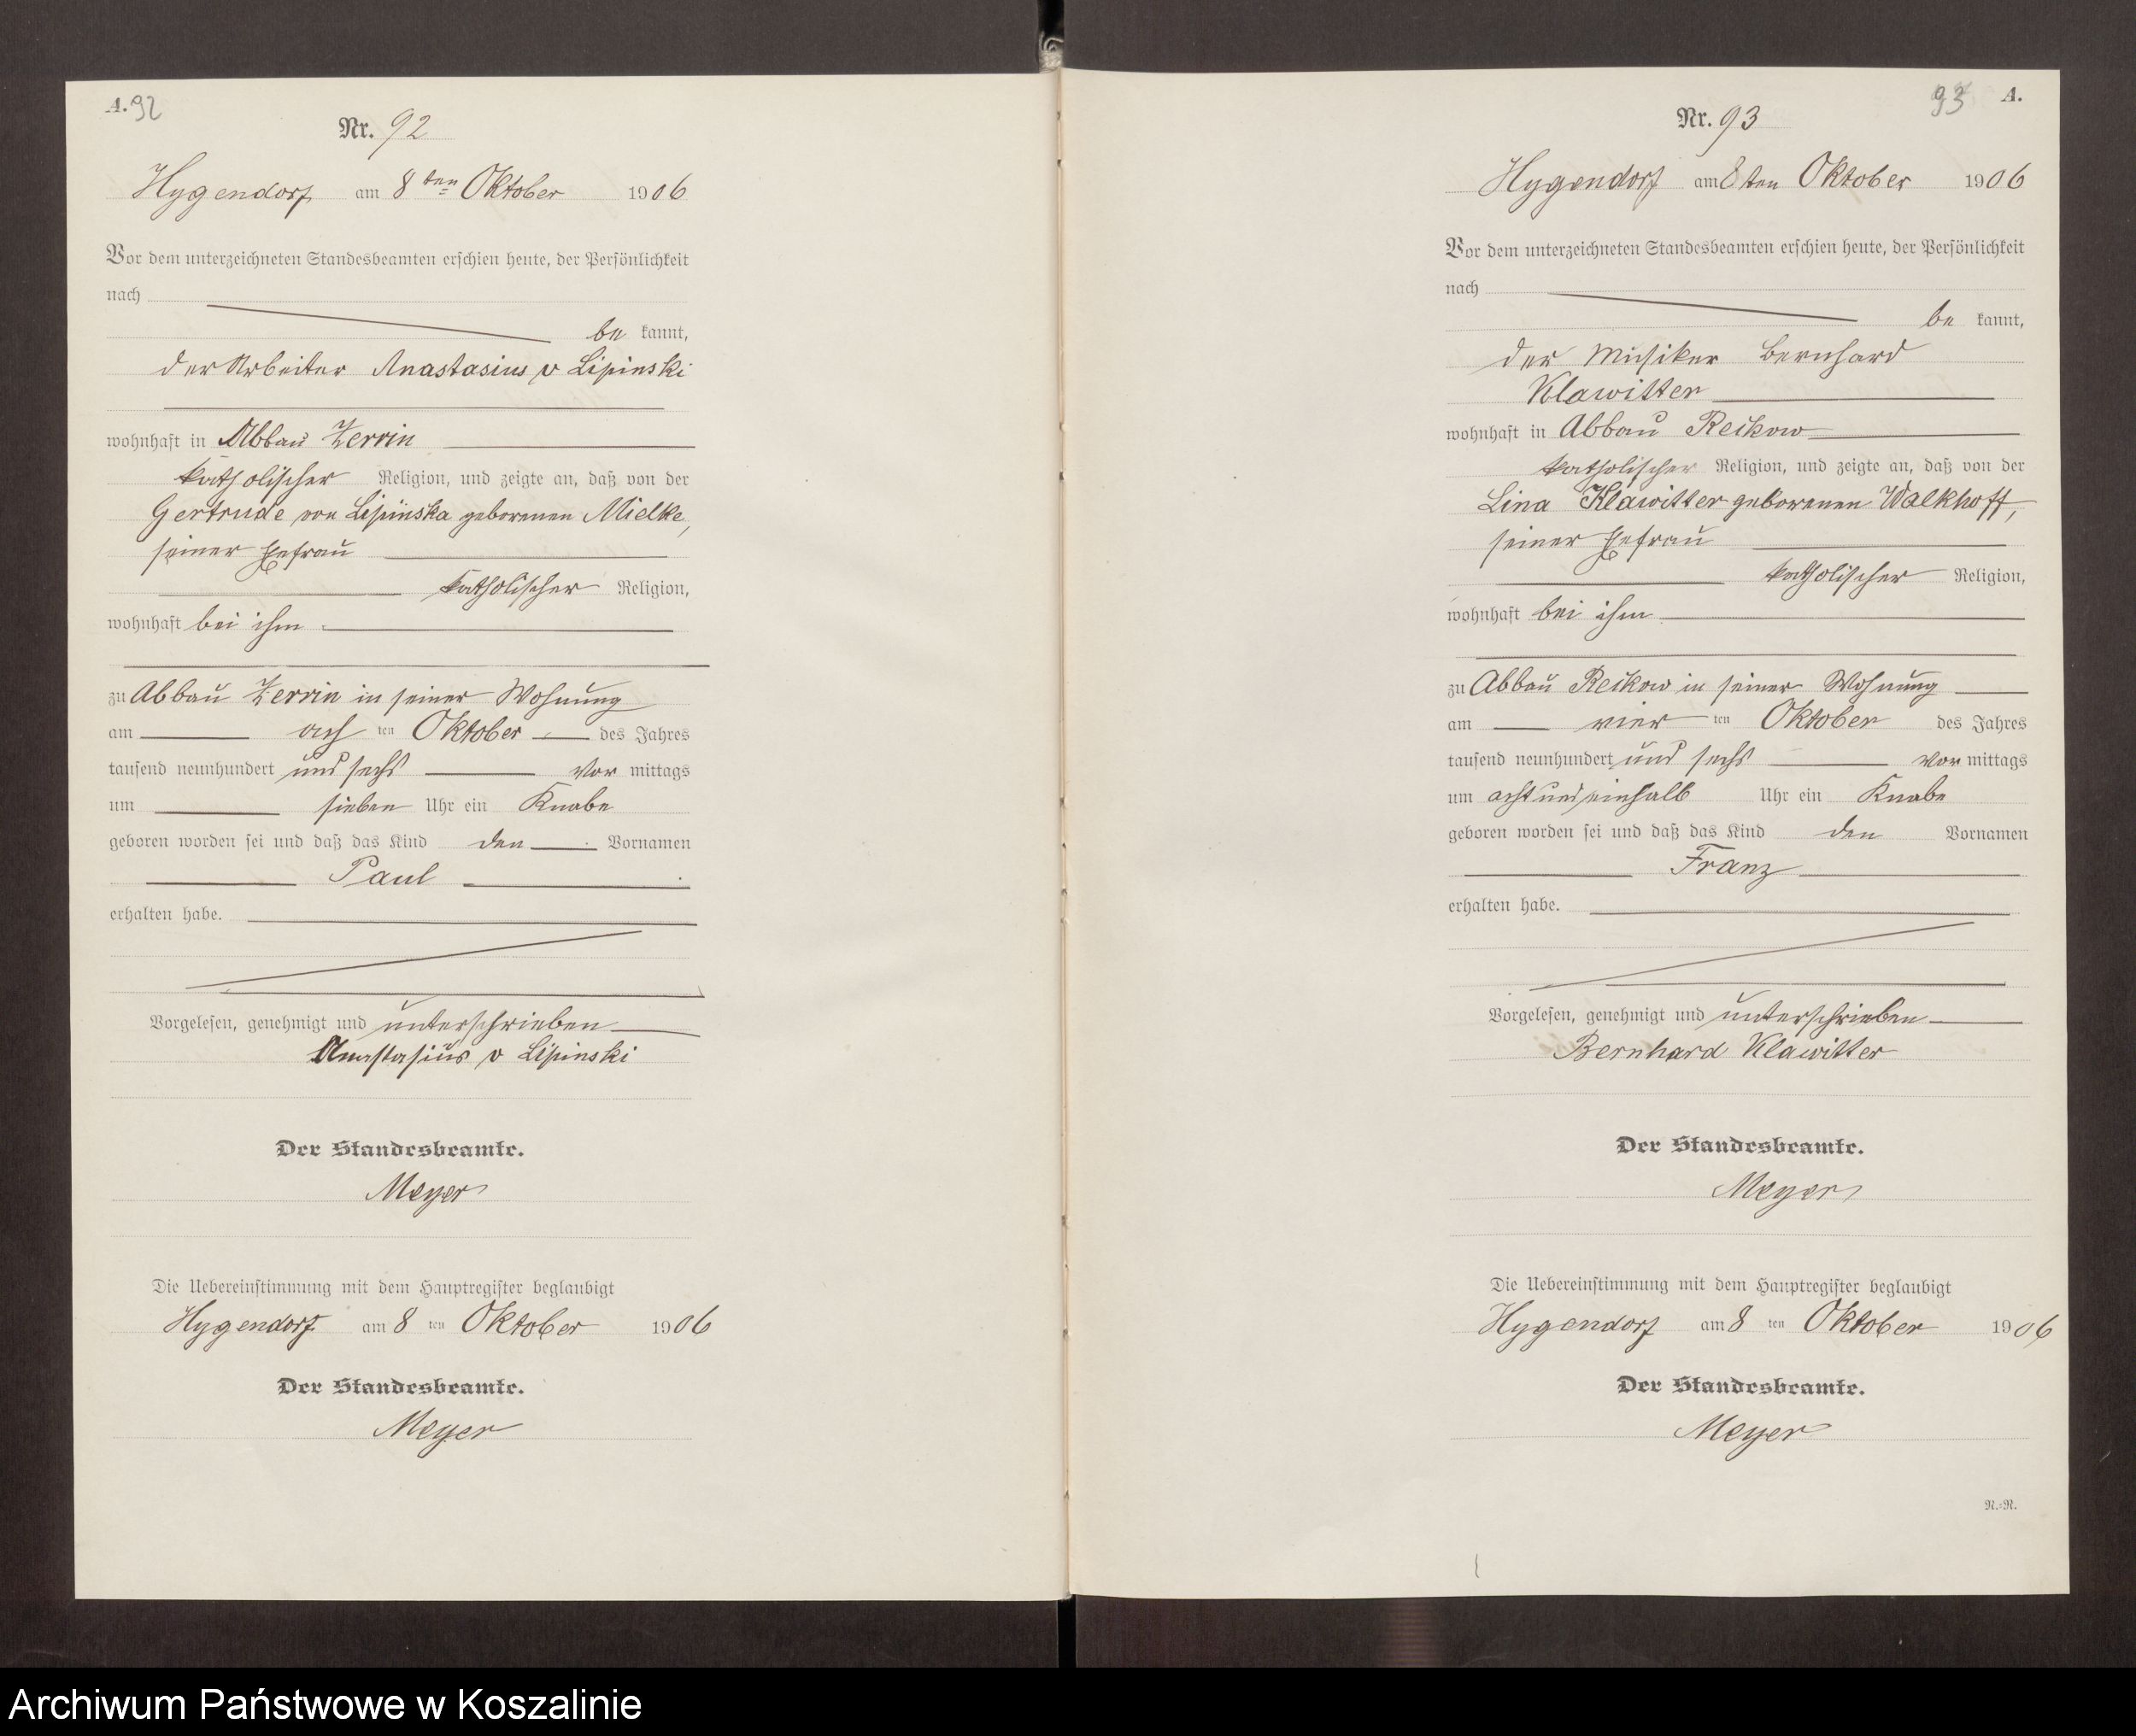 A. 92
Nr. 92
Hygendorf am 8 ten Oktober 1906
Vor dem unterzeichneten Standesbeamten erschien heute, der Persönlichkeit
nach
be kannt,
der Arbeiter Anastasius v Lipinski
wohnhaft in Abbau Zerrin
katholischer Religion, und zeigte an, daß von der
Gertrude von Lipinska geborenen Mielke,
seiner Ehefrau
katholischer Religion,
wohnhaft bei ihm
zu Abbau Zerrin in seiner Wohnung
am ach ten Oktober des Jahres
tausend neunhundert und sechs Vor mittags
um sieben Uhr ein Knabe
geboren worden sei und daß das Kind den Vornamen
Paul
erhalten habe.
Vorgelesen, genehmigt und unterschrieben
Anastasius v Lipinski
Der Standesbeamte.
Meyer
Die Uebereinstimmung mit dem Hauptregister beglaubigt
Hygendorf am 8 ten Oktober 1906
Der Standesbeamte.
Meyer
93 A.
Nr. 93
Hygendorf am 8 ten Oktober 1906
Vor dem unterzeichneten Standesbeamten erschien heute, der Persönlichkeit
nach
be kannt,
der Musiker Bernhard
Klawitter
wohnhaft in Abbau Reikow
katholischer Religion, und zeigte an, daß von der
Lina Klawitter geborenen Walkhoff,
seiner Ehefrau
katholischer Religion,
wohnhaft bei ihm
zu Abbau Reikow in seiner Wohnung
am vier ten Oktober des Jahres
tausend neunhundert und sechs Vor mittags
um acht und einhalb Uhr ein Knabe
geboren worden sei und daß das Kind den Vornamen
Franz
erhalten habe.
Vorgelesen, genehmigt und unterschrieben
Bernhard Klawitter
Der Standesbeamte.
Meyer
Die Uebereinstimmung mit dem Hauptregister beglaubigt
Hygendorf am 8 ten Oktober 1906
Der Standesbeamte.
Meyer
N.=N.
Archiwum Państwowe w Koszalinie